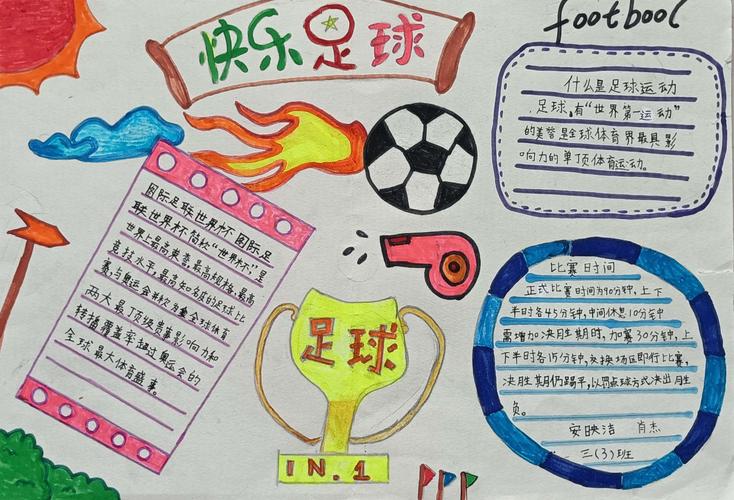 快乐足球
footbool
什么是足球运动
足球,有“世界第一运动”
的美誉是全球体育界最具影
响力的单顶体育运动。
国际足联世界杯 国际足
联世界杯简称“世界杯”是
世界上最高荣誉最高规格,最高
竞技水平,最高知名度的足球比
赛,与奥运会并称为全球体育
两大最顶级赛事影响力和
转播覆盖率超过奥运会的
全球最大体育盛事。
足球
IN.1
比赛时间
正式比赛时间为90分钟,上下
半时各45分钟,中间休息10分钟
需增加决胜期时,加赛30分钟,上
下半时各15分钟,交换场区即行比赛,
决胜期仍踢平,以罚点球方式决出胜
负。
安映洁 肖杰
三(3)班